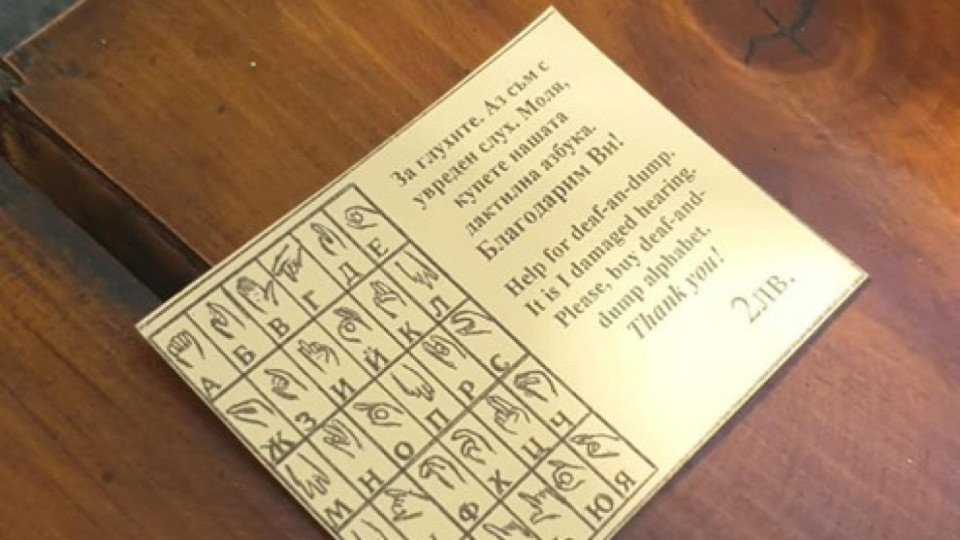 За глухите. Аз съм с
увреден слух. Моля,
купете нашата
дактилна азбука.
Благодарим Ви!
Help for deaf-an-dump.
It is I damaged hearing.
Please, buy deaf-and-
dump alphabet.
Thank you!
2лв.
А Б В Г Д Е
Ж З И Й К Л
М Н О П Р С
Ф Х Ц Ч
Ю Я